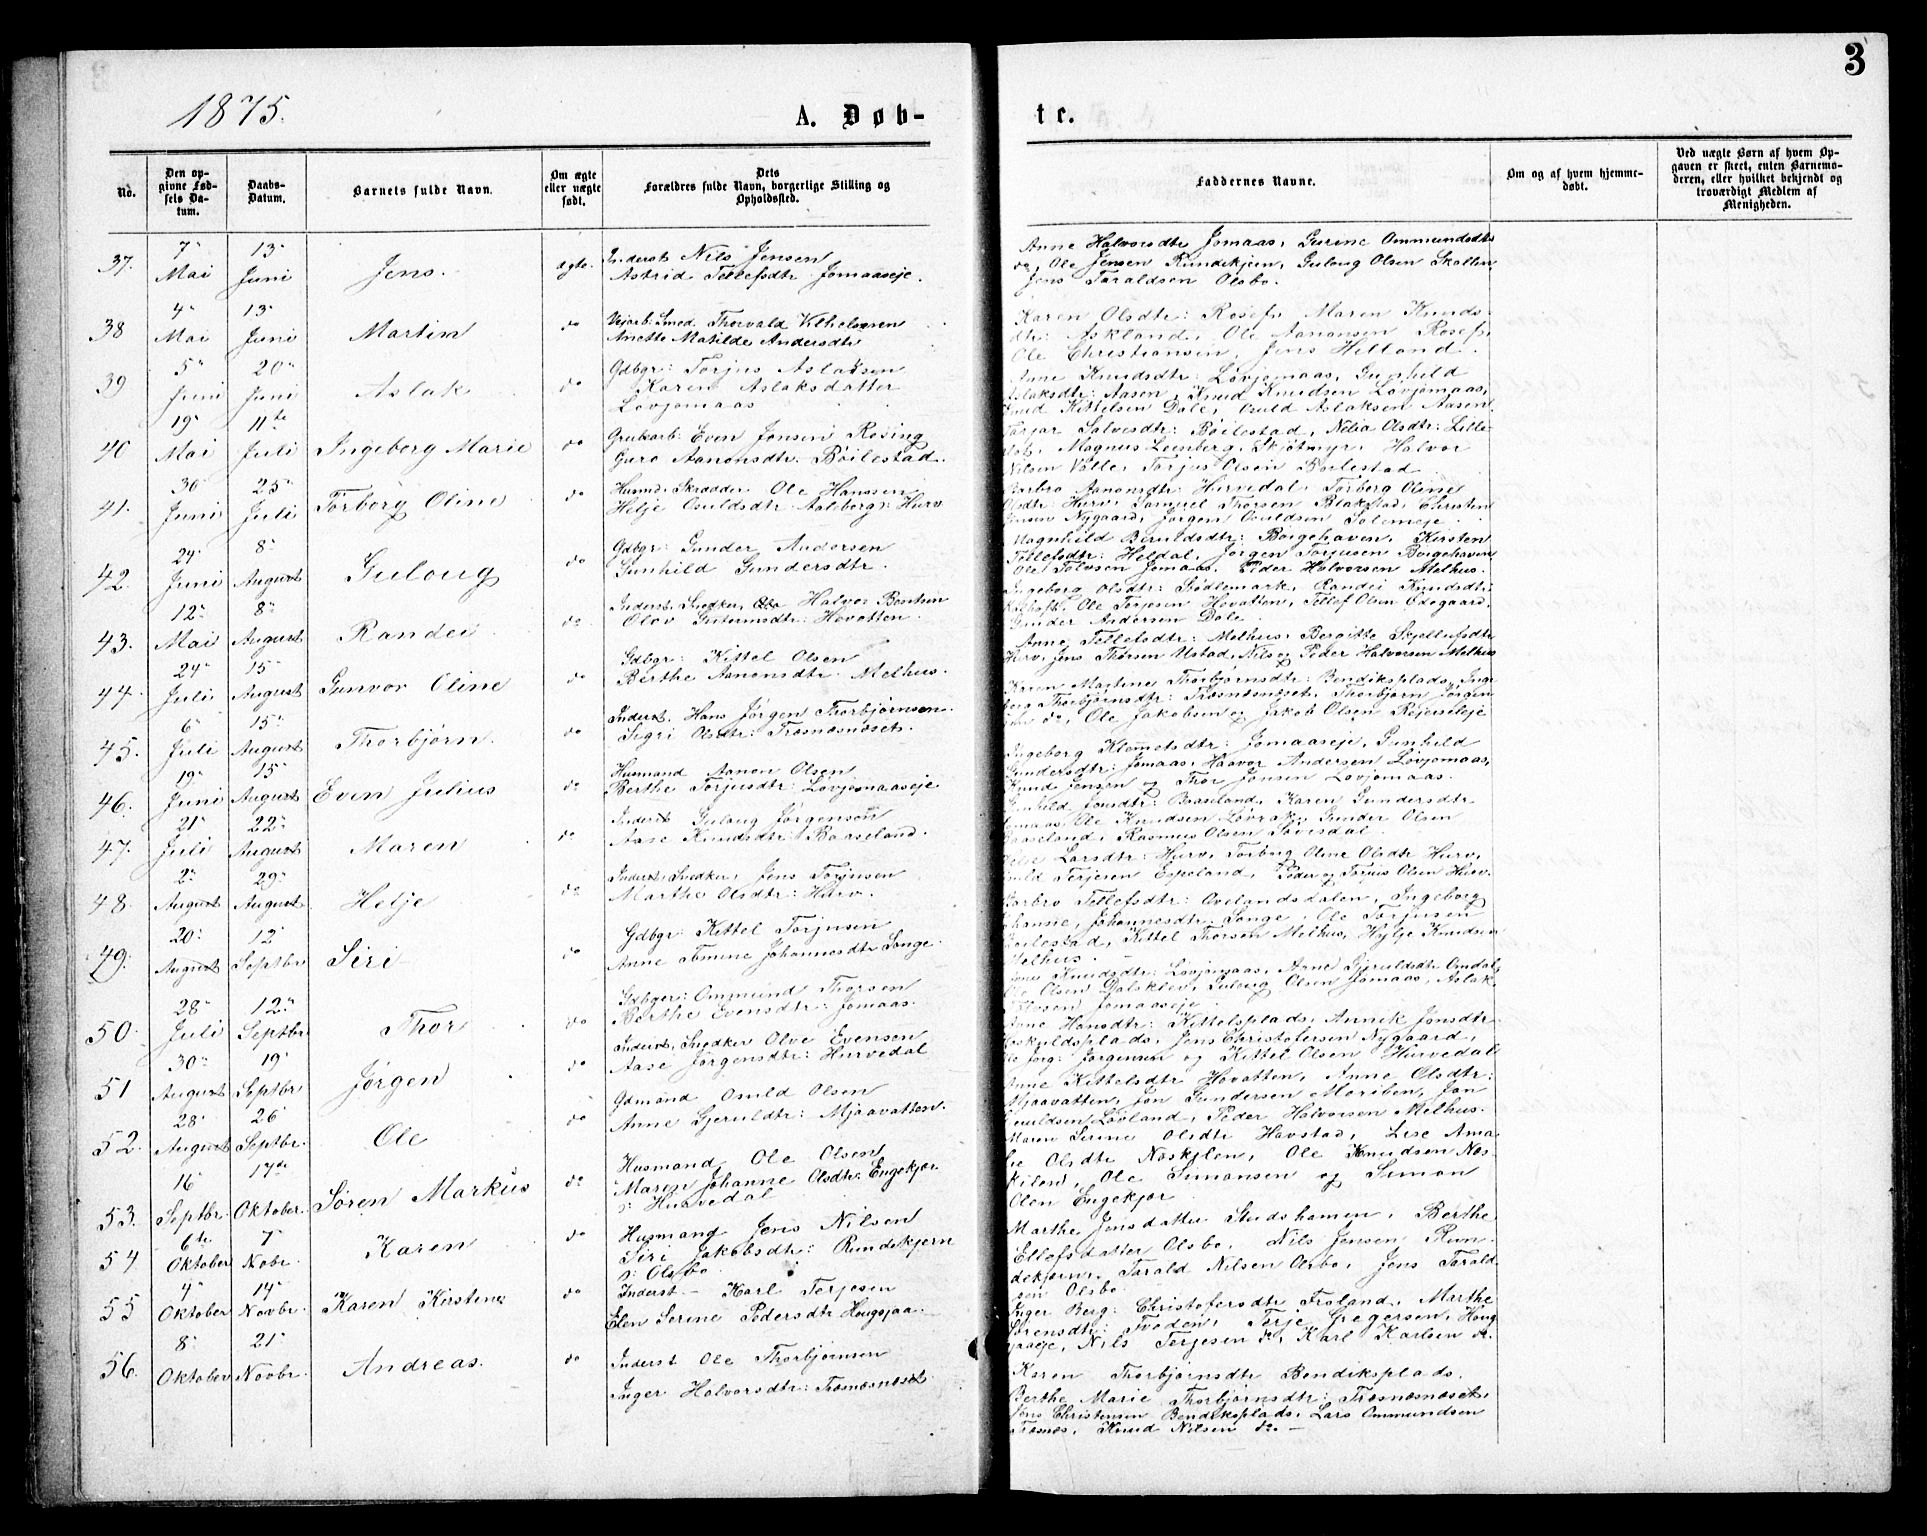 3
1875.
A. Døb-
te.
No.
Den op-
givne Fød-
sels Da-
tum.
Daabs-
Datum.
Barnets fulde Navn.
Om ægte
eller uægte
født.
Dets
Forældres fulde Navn, borgerlige Stilling og
Opholdssted.
Faddernes Navne.
Om og af hvem hjemme-
døbt.
Ved uægte Børn af hvem Op-
gaven er skeet, enten Barnemo-
deren, eller hvilket bekjendt og
troværdigt Medlem af
Menigheden.
37. 7 Mai 13 Juni Jens. ægte.
Inderst Nils Jensen
Astrid Tellefsdtr Jomaaseje.
Anne Halvorsdtr Jomaas, Gurine Ommundsdtr
do, Ole Jensen Rundekjen, Guloug Olsen Skallen
Jens Taraldsen Olsbo.
38 4 Mai 13 Juni Martin do
Smed Thorvald
Anette Matilde Andersdtr
Karen Olsdtr: Rosef Maren Knuds-
dtr: Askland, Ole Aanonsen Rosef,
Ole Christiansen, Jens Hilland.
39 5 Juni 20 Juni Aslak do
Gdbgr: Torjus Aslaksen
Karen Aslaksdatter
Lovjomaas
Knudsdtr: Lovjomaas, Gunhild
Aslaksdtr: Aasen, Knud Knudsen Lovjomaas,
Knud Kittelsen Dale, Aslaksen Aasen
40 19 Mai 11te Juli Ingeborg Marie do
Grubarb: Even Jensen Rosing
Guro Aanonsdtr. Böilestad.
Salvesdtr: Böilestad, Nelia Olsdtr: Lille-
Magnus Leenberg, Skjötmyr, Halvor
Nilsen Valle, Torjus Olsen Böilestad
41. 30 Juni 25 Juli Torborg Oline do
Husmd. Skrædder Ole Hanssen
Helje Osuldsdtr. Aalberg: Hurv
Barbro Aanonsdtr: Hurvedal, Torborg Oline
Olsdtr: Hurv, Samuel Thorsen Blakstad, Christen
Jensen Nygaard, Jørgen Osuldsen
42. 24 Juni 8 August Guloug do
Gdbgr: Gunder Andersen
Gunhild Gundersdtr.
Magnhild Borgehaven, Kirsten
Tellefsdtr: Heldal, Jørgen Torjusen Borgehaven
Ole Jomaas, Peder Halvorsen Melhus.
43. 12 Mai 8 August Randei do
Inderst, Snedker, Halvor
Olov Guttormsdtr: Hovatten.
Ingeborg Olsdtr: Stedlemark, Randei Knudsdtr:
Ole Terjesen Hovatten, Tellef Olsen Ødegaard,
Gunder Andersen Dale
44. 24 Juli 15 August Gunvor Oline do
Gdbgr: Kittel Olsen
Berthe Aanonsdtr. Melhus.
Anne Tellefsdtr: Melhus, Bergitte
Hurv, Jens Thorsen Ustad, Nils og Peder Halvorsen Melhus
45. 6 Juli 15 August Thorbjørn. do
Inderst. Hans Jørgen Thorbjørnsen.
Sigri Olsdtr: Tromosnøset.
Karen Martine Thorbjørnsdtr: Bendiksplads, Inge-
borg Thorbjørnsdtr: Thorbjørn Jørgen-
do, Ole Jakobsen og Jakob Olsen
46. 19 Juni 15 August Even Julius do
Husmand Aanon Olsen
Berthe Torjusdtr: Lovjomaaseje
Ingeborg Klemetsdtr: Jomaaseje, Gunhild
Gundersdtr: Jomaas, Haavor Andersen Lovjomaas,
Knud Jensen og Thor Jensen Lovjomaas.
47. 21 Juli 22 August Maren do
Inderst Guloug Jørgensen
Aase Knudsdtr: Baaseland.
Gunhild Jonsdtr: Baaseland, Karen Gundersdtr
Jomaas, Ole Knudsen Lovrak, Gunder Olsen
Baaseland, Rasmus Olsen
48. 2 August 29 August Helje do
Inderst, Snedker, Jens Torjusen
Marthe Olsdtr: Hurv.
Larsdtr: Hurv, Torborg Oline Olsdtr Hurv,
Terjesen Espeland, Peder og Torjus Olsen Hurv.
49. 20 August 12 Septbr Siri do
Gdbgr: Kittel Torjusen
Anne Johannesdtr Songe.
Barbro Tellefsdtr: Ovelandsdalen, Ingeborg
Johannesdtr: Songe, Ole Torjusen
Böilestad, Kittel Thorsen Melhus, Hylje Knudsen
Melhus.
50. 28 Juli 12 Septbr Thor do
Gdbger: Ommund Thorsen
Berthe Evensdtr: Jomaas.
Knudsdtr: Lovjomaas, Anne Omdal,
Ole Olsen Dalsklev, Guloug Olsen Jomaas, Aslak
Jomaaseje
51 30 August 19 Septbr Jørgen do
Inderst, Snedker Olve Evensen
Aase Jørgensdtr: Hurvedal
Anne Hansdtr: Kittelsplads, Annik Jonsdtr
Jens Christofersen Nygaard,
Jørgensen og Kittel Olsen Hurvedal
52. 28 August 26 Septbr. Ole do
Gdmand Osuld Olsen
Anne Gjeruldtr: Mjaavatten.
Anne Kittelsdtr Hovatten, Anne Olsdtr:
Mjaavatten, Jon Gundersen Moriben, Jon
Lovland, Peder Halvorsen Melhus.
53. 16 Septbr. 17de Oktober. Søren Markus do
Husmand Ole Olsen
Maren Johanne Olsdtr. Engekjær
p: Hurvedal
Maren Serine Olsdtr Havstad, Lise Ama-
lie Olsdtr Naskilen, Ole Knudsen Nas-
kilen, Ole Simonsen og Simon
Olsen Engekjær
54 6te Oktober 7 Nobr. Karen do
Husmand Jens Nilsen
Siri Jakobsdtr: Rundekjern
p: Olsbo.
Marthe Jensdatter Studehamen, Berthe
Ellefsdatter Olsbo, Nils Jensen Run-
dekjern, Tarald Nilsen Olsbo, Jens Tarald-
sen Olsbo
55 4 Oktober 14 Novbr. Karen Kirstine do
Inderst - Karl Terjesen
Elen Serine Pedersdtr Haugsjaa.
Inger Berg: Christofersdtr Froland, Marthe
Sørensdtr: Tveden, Terje Gregersen, Haug-
jaaeje, Nils Terjesen do, Karl Karlsen do.
56. 8 Oktober 21 Novbr. Andreas. do
Inderst Ole Thorbjørnsen
Inger Halvorsdtr: Tromosnøset
Karen Thorbjørnsdtr Bendiksplads.
Berthe Marie Thorbjørnsdtr: Tromosnøset,
Jens Christensen Bendiksplads, Lars Ommundsen
Knud Nilsen do. -